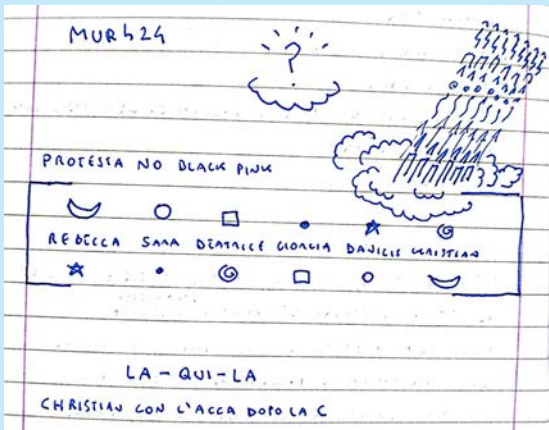 MUR h24
?
PROTESTA NO BLACK PINK
REBECCA SARA BEATRICE GIORGIA DANIELE
LA - QUI - LA
CHRISTIAN CON L'ACCA DOPO LA C